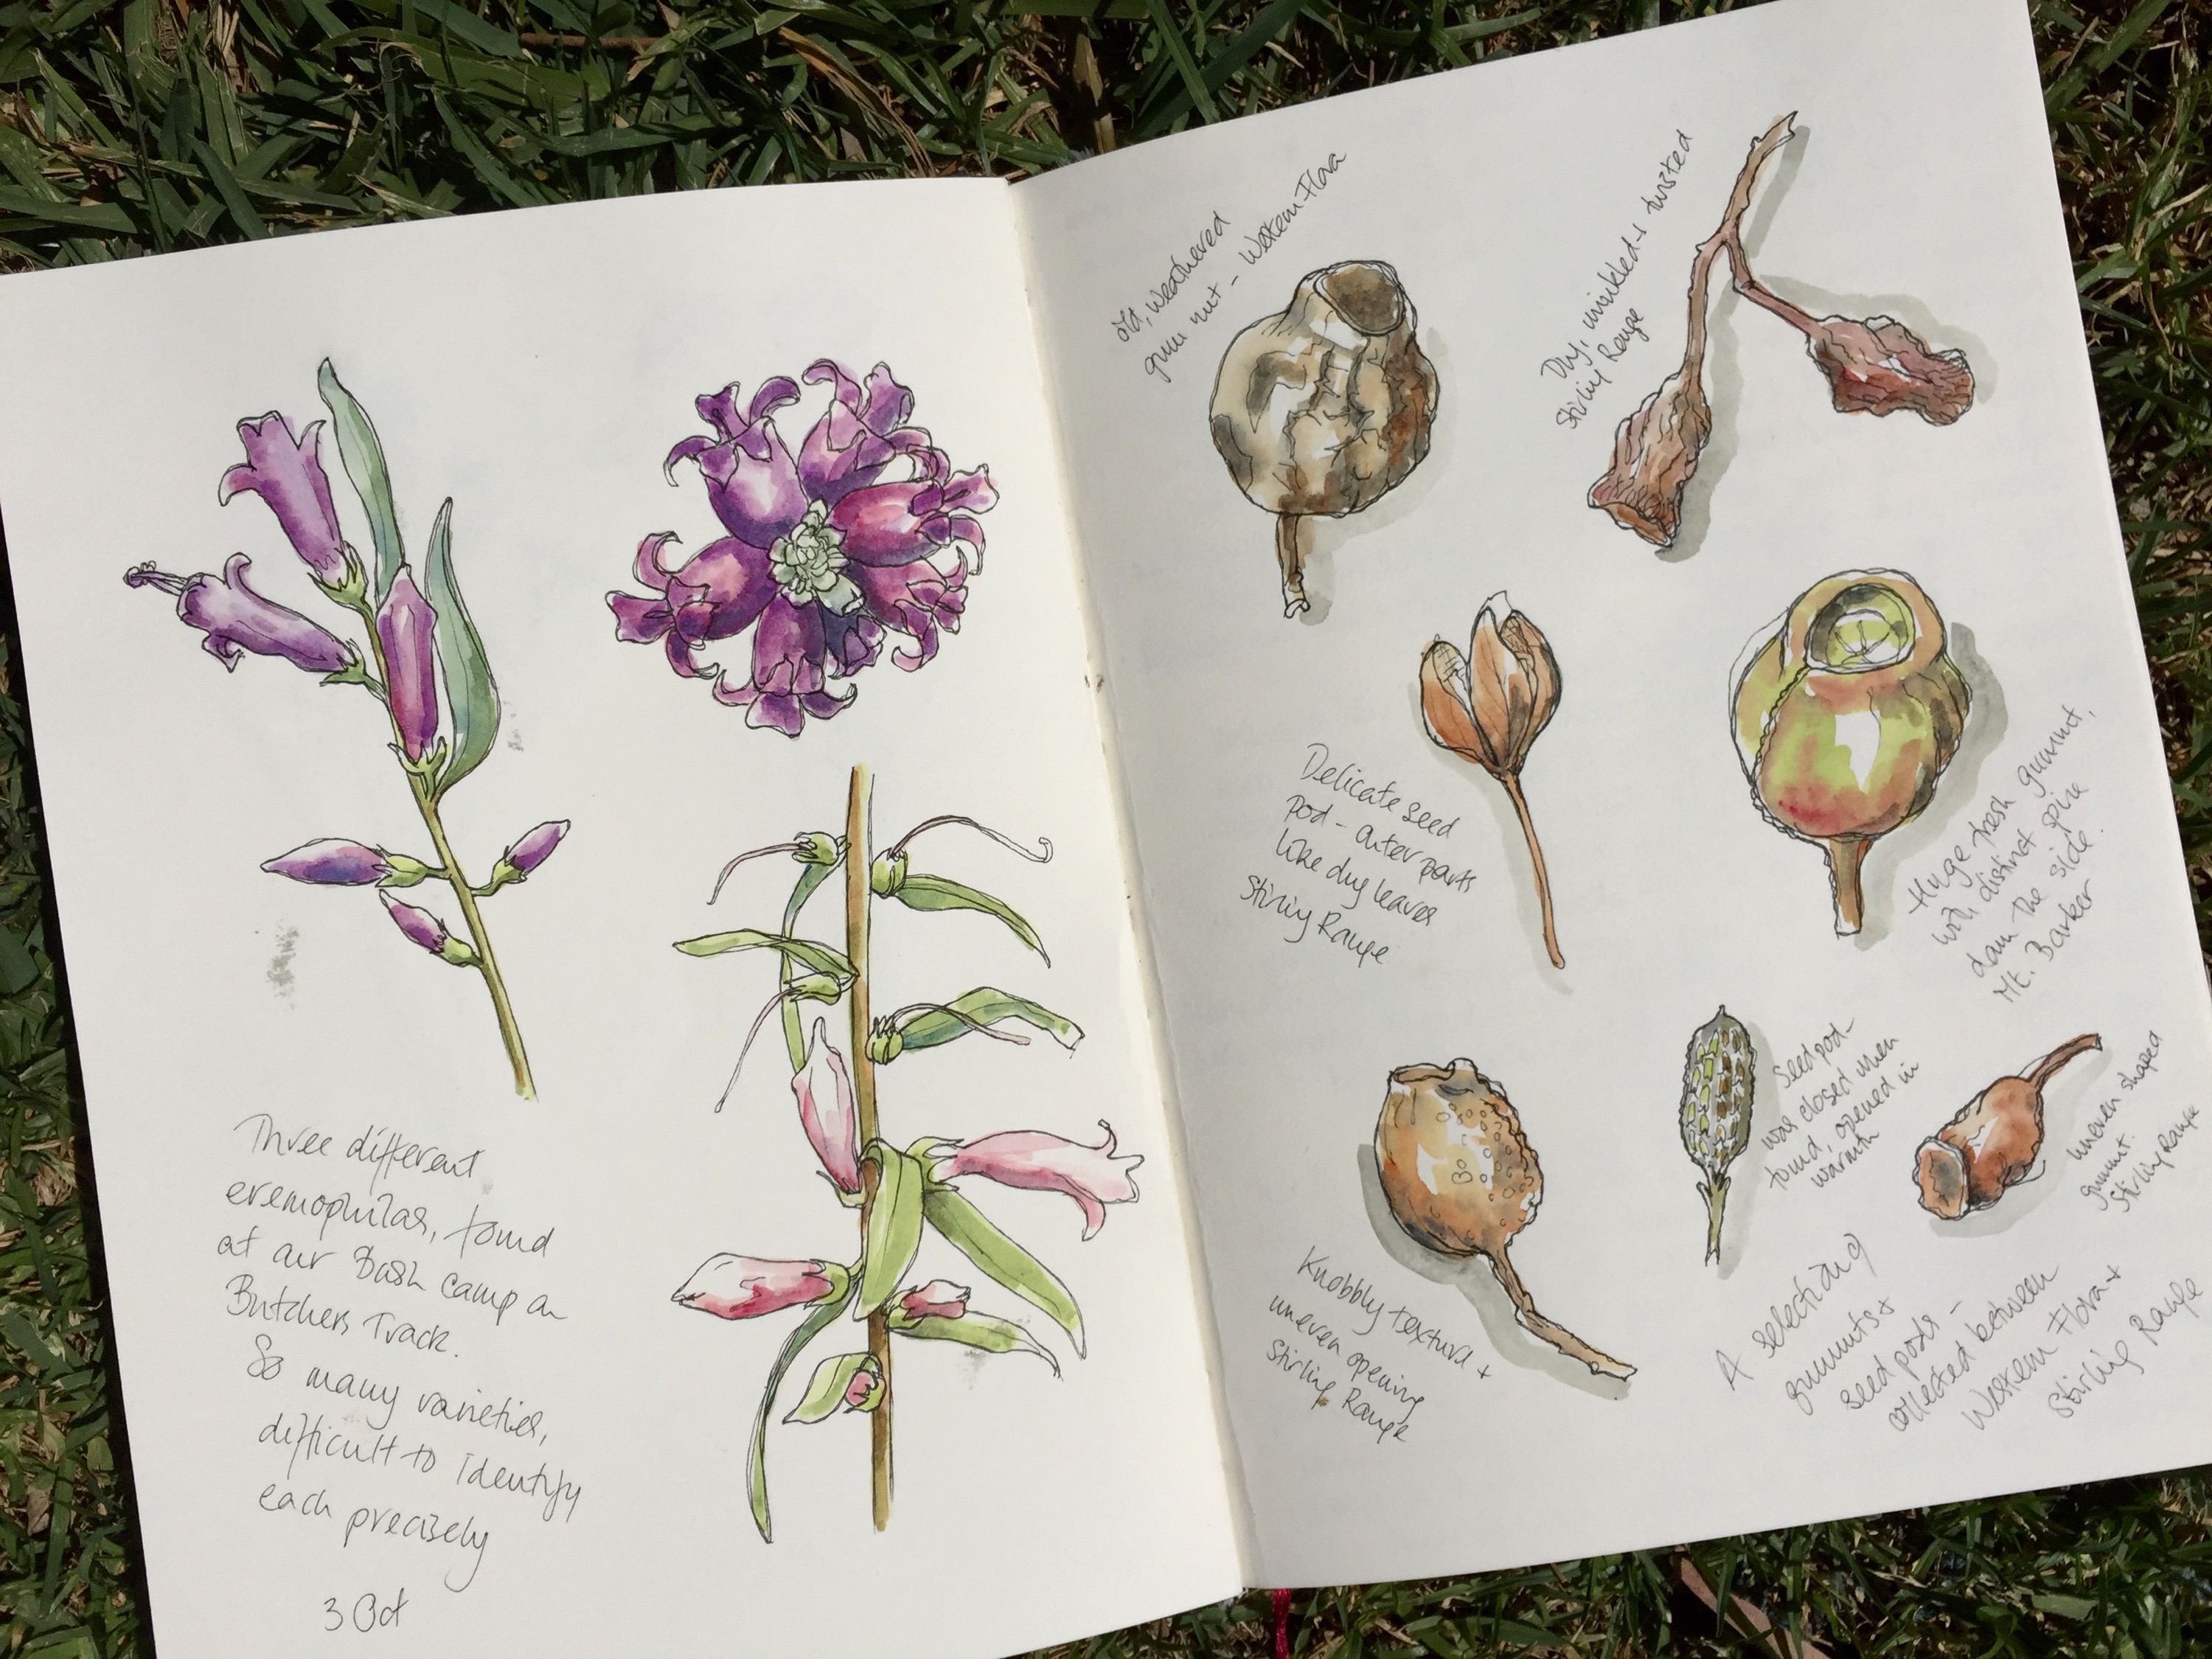 Three different
eremophilas, found
at our Bush camp on
Butchers Track.
So many varieties,
difficult to identify
each precisely
3 Oct
old, weathered
gum nut - Western Flora
Dry, wrinkled + twisted
Stirling Range
Delicate seed
pod - outer parts
like dry leaves
Stirling Range
Huge fresh gumnut,
with distinct spine
down the side.
Mt. Barker
Knobbly texture +
uneven opening
Stirling Range
Seed pod -
was closed when
found, opened in
warmth
uneven shaped
gumnut.
Stirling Range
A selection of
gumnuts +
seed pods -
collected between
Western Flora +
Stirling Range